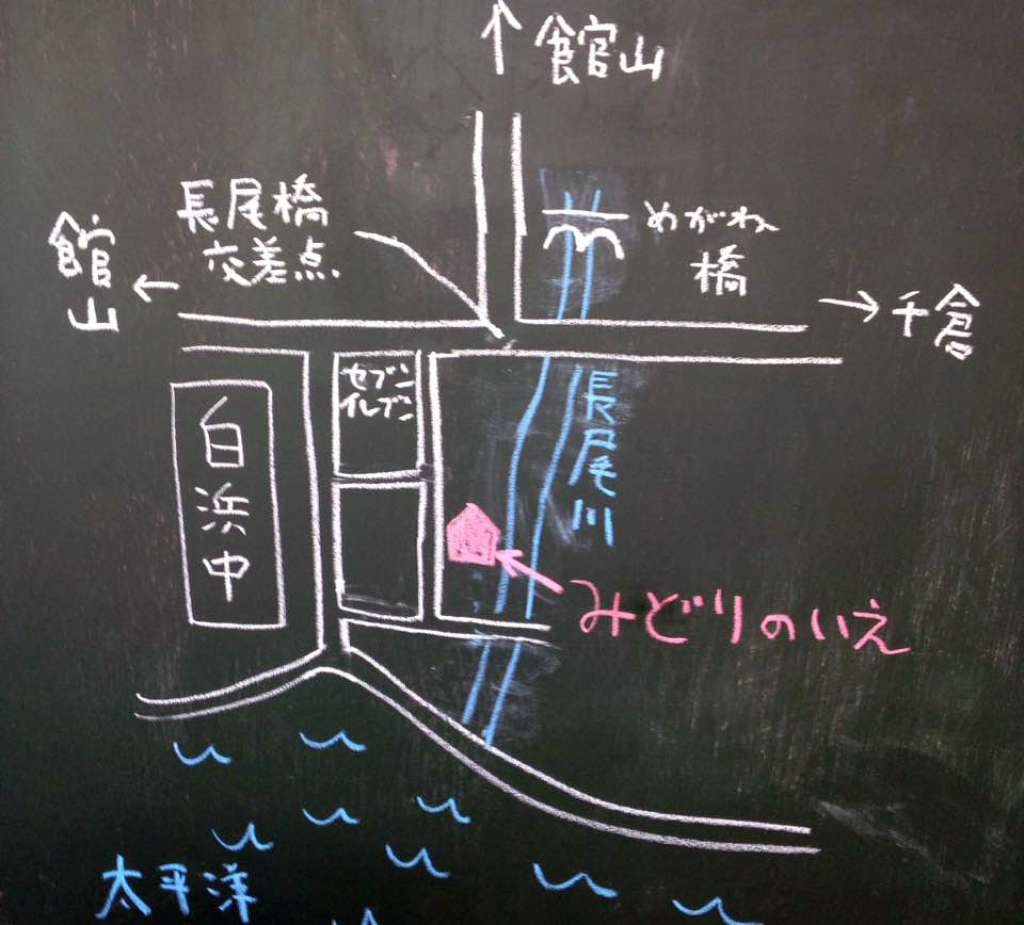 館官山
長尾橋
交差点
館
山
めがね
橋
千倉
セブン
イレブン
白浜中
長尾川
みどりのいえ
太平洋